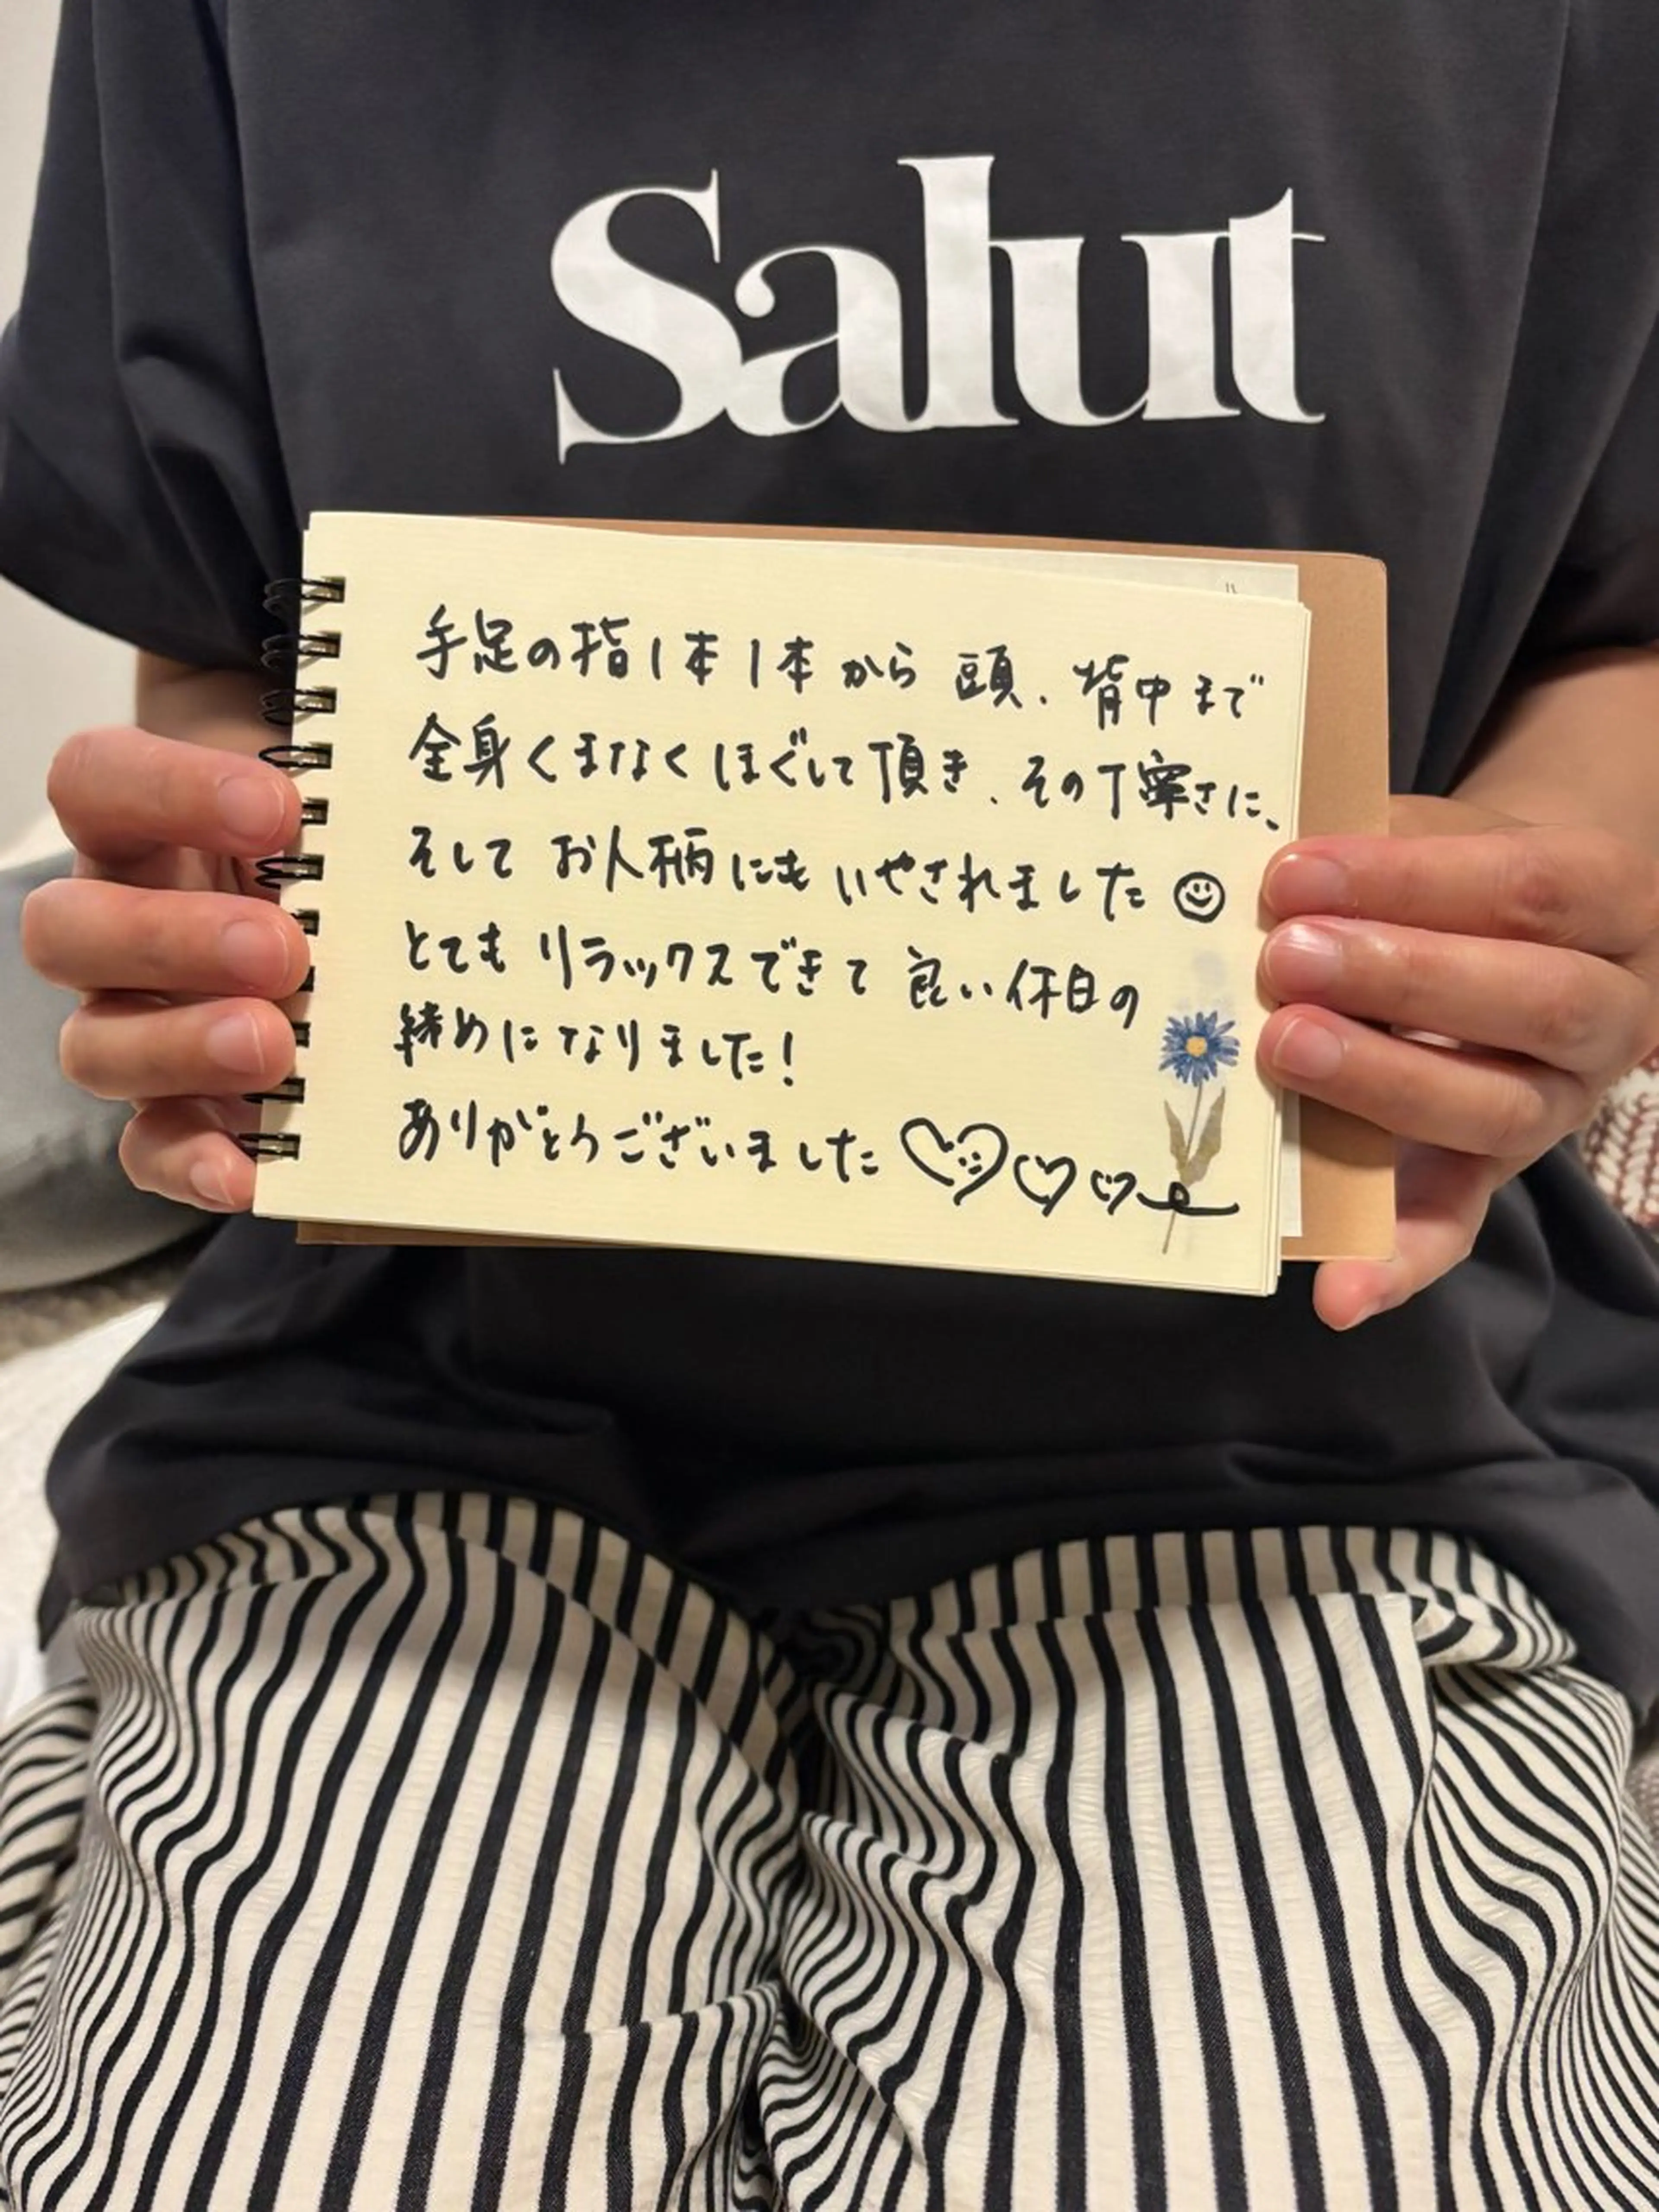 Salut
手足の指1本1本から 頭、背中まで
全身くまなくほぐして頂き、その丁寧さに、
そして お人柄にも いやされました☺
とても リラックスできて 良い休日の
締めになりました!
ありがとうございました♡♡♡